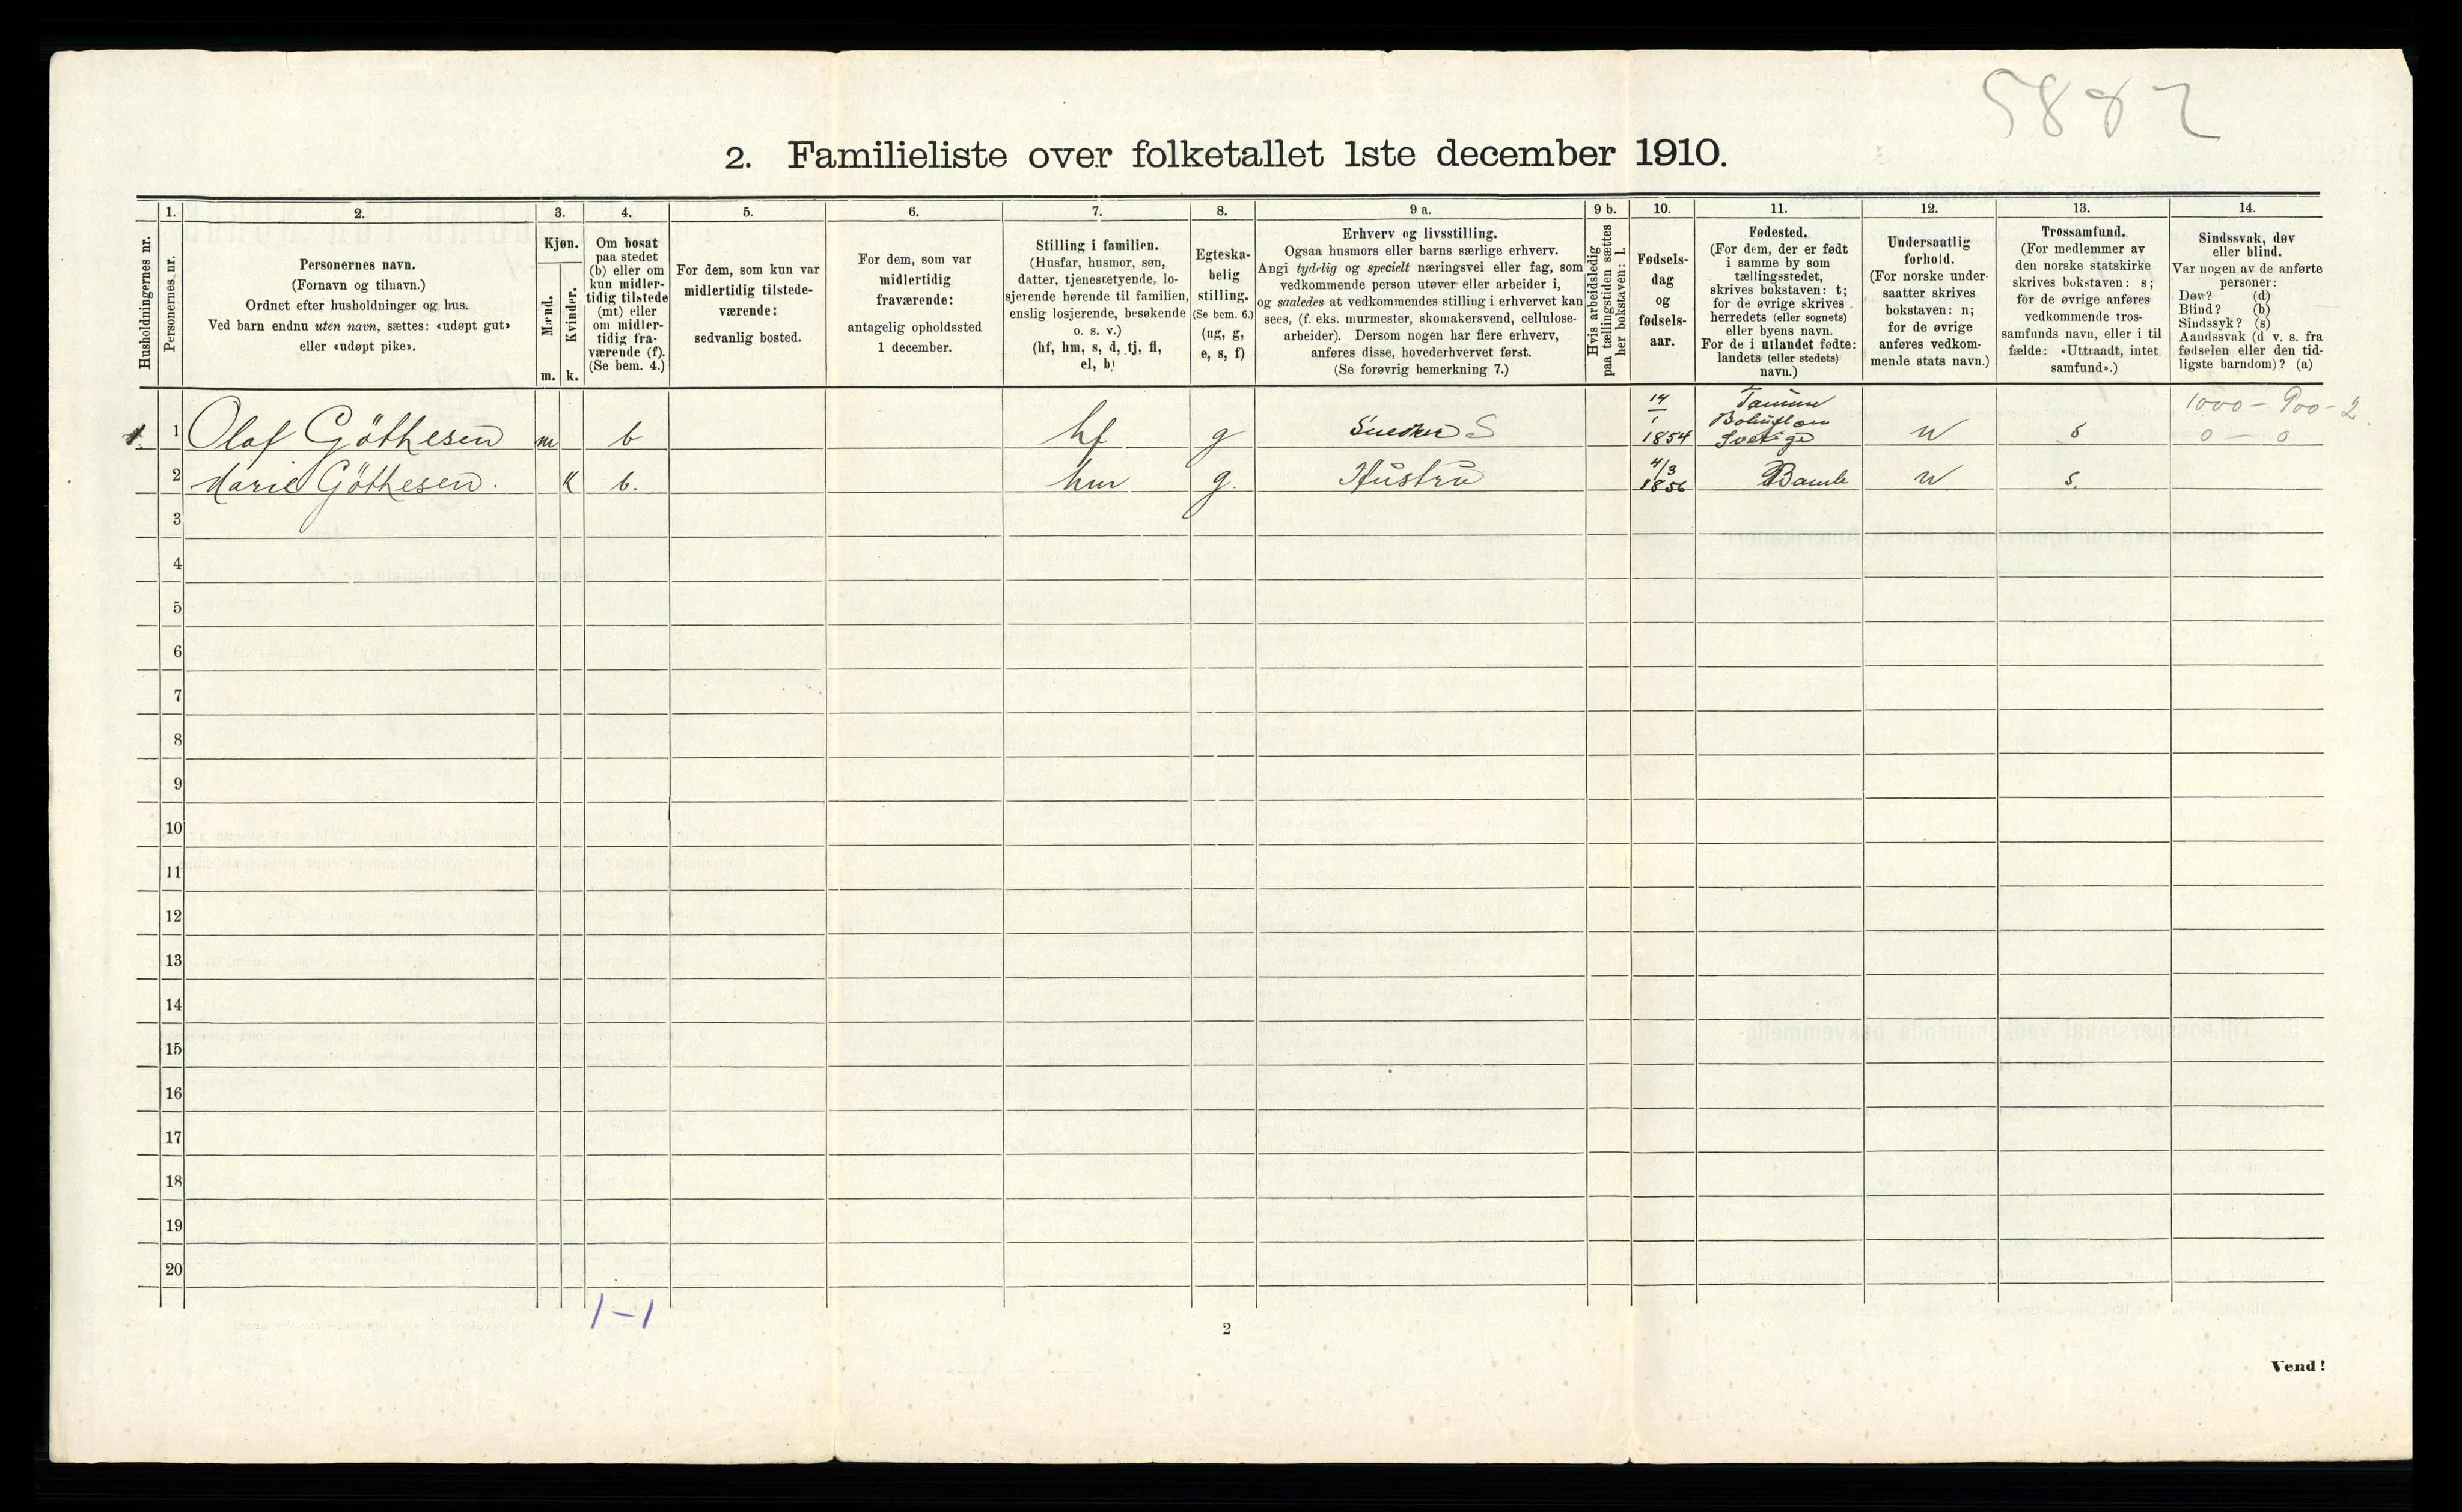 5882
2. Familieliste over folketallet 1ste december 1910.
Husholdningernes nr.
1.
Personernes nr.
2.
Personernes navn.
(Fornavn og tilnavn.)
Ordnet efter husholdninger og hus.
Ved barn endnu uten navn, sættes: «udøpt gut»
eller «udøpt pike».
3.
Kjøn.
Mænd.
m.
Kvinder.
k.
4.
Om bosat
paa stedet
(b) eller om
kun midler-
tidig tilstede
(mt) eller
om midler-
tidig fra-
værende (f).
(Se bem. 4.)
5.
For dem, som kun var
midlertidig tilstede-
værende:
sedvanlig bosted.
6.
For dem, som var
midlertidig
fraværende:
antagelig opholdssted
1 december.
7.
Stilling i familien.
(Husfar, husmor, søn,
datter, tjenestyende, lo-
sjerende hørende til familien,
enslig losjerende, besøkende
o. s. v.)
(hf, hm, s, d, tj, fl,
el, b)
8.
Egteska-
belig
stilling.
(Se bem. 6.)
(ug, g,
e, s, f)
9 a.
Erhverv og livsstilling.
Ogsaa husmors eller barns særlige erhverv.
Angi tydelig og specielt næringsvei eller fag, som
vedkommende person utøver eller arbeider i,
og saaledes at vedkommendes stilling i erhvervet kan
sees, (f. eks. murmester, skomakersvend, cellulose-
arbeider). Dersom nogen har flere erhverv,
anføres disse, hovederhvervet først.
(Se forøvrig bemerkning 7.)
9 b.
Hvis arbeidsledig
paa tællingstiden sættes
her bokstaven: l.
10.
Fødsels-
dag
og
fødsels-
aar.
11.
Fødested.
(For dem, der er født
i samme by som
tællingsstedet,
skrives bokstaven: t;
for de øvrige skrives
herredets (eller sognets)
eller byens navn.
For de i utlandet fødte:
landets (eller stedets)
navn.)
12.
Undersaatlig
forhold.
(For norske under-
saatter skrives
bokstaven: n;
for de øvrige
anføres vedkom-
mende stats navn.)
13.
Trossamfund.
(For medlemmer av
den norske statskirke
skrives bokstaven: s;
for de øvrige anføres
vedkommende tros-
samfunds navn, eller i til
fælde: «Uttraadt, intet
samfund».)
14.
Sindssvak, døv
eller blind.
Var nogen av de anførte
personer:
Døv? (d)
Blind? (b)
Sindssyk? (s)
Aandssvak (d v. s. fra
fødselen eller den tid-
ligste barndom)? (a)
1. 1 Olaf Göthesen m b hf g S 14/1 1854 Tanum Bohuslen Sverige n s 1000 – 900 – 2 0 – 0
2 Marie Göthesen. k b. hm g. Hustru 4/3 1856 Bamle n s.
3
4
5
6
7
8
9
10
11
12
13
14
15
16
17
18
19
20
1–1
2
Vend!